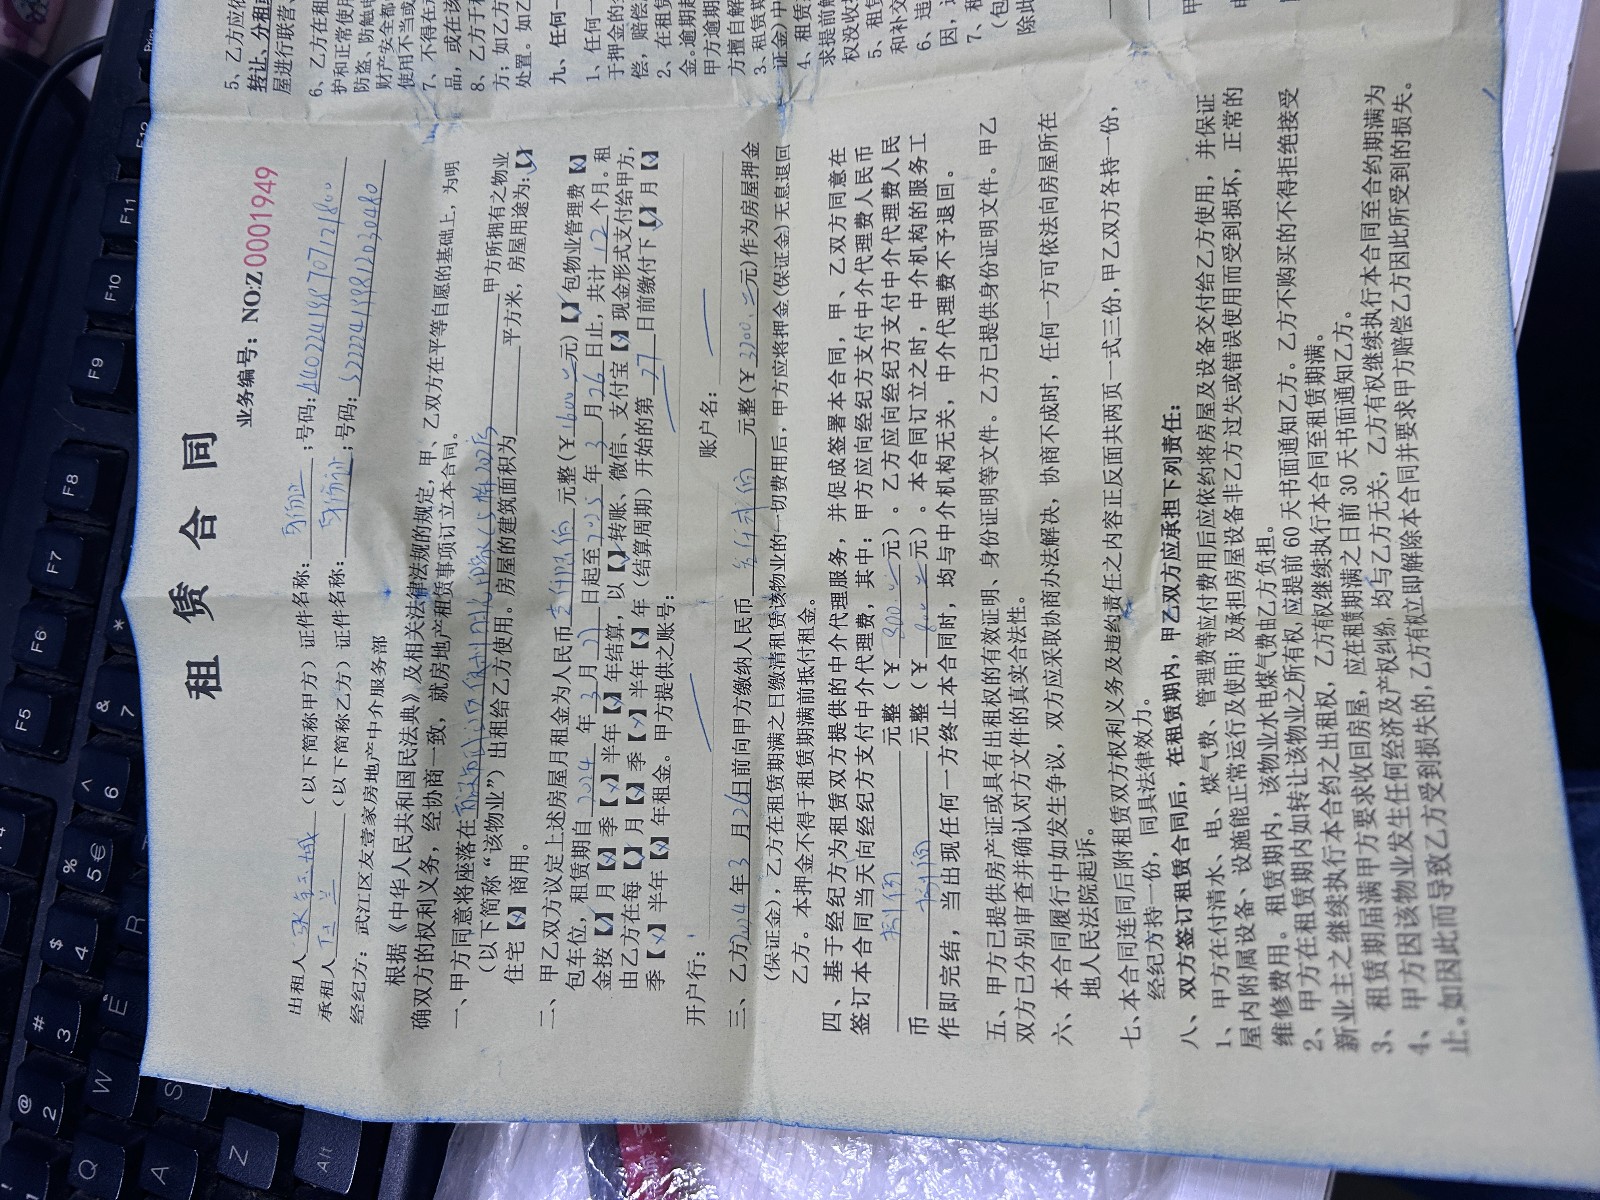 租 赁 合 同
业务编号：NO:Z 0001949
出租人 （以下简称甲方）证件名称：身份证；号码：
承租人 （以下简称乙方）证件名称：身份证；号码：522224198812030480
经纪方：武江区友壹家房地产中介服务部
根据《中华人民共和国民法典》及相关法律法规的规定，甲、乙双方在平等自愿的基础上，为明
确双方的权利义务，经协商一致，就房地产租赁事项订立本合同。
一、甲方同意将座落在 甲方所拥有之物业
（以下简称“该物业”）出租给乙方使用。房屋的建筑面积为 平方米，房屋用途为：【√】
住宅【×】商用。
二、甲乙双方议定上述房屋月租金为人民币壹仟陆佰元整（￥1600.元）【√】包物业管理费【×】
包车位，租赁期自2024年3月27日起至2025年3月26日止，共计12个月。租
金按【√】月【×】季【×】半年【×】年结算，以【√】转账、微信、支付宝【×】现金形式支付给甲方，
由乙方在每【√】月【×】季【×】半年【×】年（结算周期）开始的第27日前缴付下【√】月【×】
季【×】半年【×】年租金。甲方提供之账号：
开户行： 账户名：
三、乙方2024年3月26日前向甲方缴纳人民币叁仟贰佰元整（￥3200.元)作为房屋押金
(保证金)，乙方在租赁期满之日缴清租赁该物业的一切费用后，甲方应将押金(保证金)无息退回
乙方。本押金不得于租赁期满前抵付租金。
四、基于经纪方为租赁双方提供的中介代理服务，并促成签署本合同，甲、乙双方同意在
签订本合同当天向经纪方支付中介代理费，其中：甲方应向经纪方支付中介代理费人民币
捌佰元整（￥800.元）。乙方应向经纪方支付中介代理费人民
币捌佰元整（￥800.元）。本合同订立之时，中介机构的服务工
作即完结，当出现任何一方终止本合同时，均与中介机构无关，中介代理费不予退回。
五、甲方已提供房产证或具有出租权的有效证明、身份证明等文件。乙方已提供身份证明文件。甲乙
双方已分别审查并确认对方文件的真实合法性。
六、本合同履行中如发生争议，双方应采取协商办法解决，协商不成时，任何一方可依法向房屋所在
地人民法院起诉。
七、本合同连同后附租赁双方权利义务及违约责任之内容正反面共两页一式三份，甲乙双方各持一份，
经纪方持一份，同具法律效力。
八、双方签订租赁合同后，在租赁期内，甲乙双方应承担下列责任：
1、甲方在付清水、电、煤气费、管理费等应付费用后应依约将房屋及设备交付给乙方使用，并保证
屋内附属设备、设施能正常运行及使用；及承担房屋设备非乙方过失或错误使用而受到损坏，正常的
维修费用。租赁期内，该物业水电煤气费由乙方负担。
2、甲方在租赁期内如转让该物业之所有权,应提前60天书面通知乙方。乙方不购买的不得拒绝接受
新业主之继续执行本合约之出租权，乙方有权继续执行本合同至租赁期满。
3、租赁期届满甲方要求收回房屋，应在租赁期满之日前30天书面通知乙方。
4、甲方因该物业发生任何经济及产权纠纷，均与乙方无关，乙方有权继续执行本合同至合约期满为
止。如因此而导致乙方受到损失的,乙方有权立即解除本合同并要求甲方赔偿乙方因此所受到的损失。
5、乙方应依
转让、分租
屋进行联营、
6、乙方在租
护和正常使用
防盗、防触电
财产安全都
使用不当或
7、不得在
品，或在该
8、乙方于
方；如乙方
处置。如乙
九、任何一
1、任何一
于押金的
偿，赔偿
2、在租赁
金。逾期
甲方逾期
方擅自解
3、租赁期
证金)中
4、租赁
求提前解
权没收
5、租赁
和补交
6、违
因，
7、租
（包
除此
F5
F6
F7
F8
F9
F10
F11
F12
Print
@ 2
# 3
$ 4
% 5 €
^ 6
& 7
*
Q
W
E
R
A
S
Z
Alt